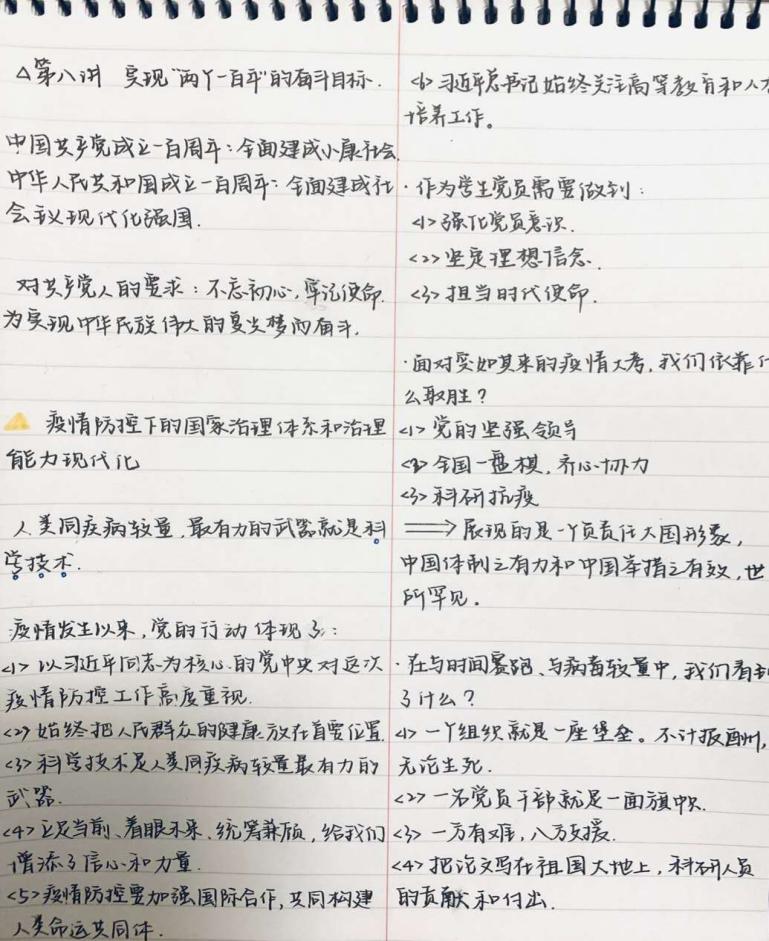 △第八讲 实现"两个一百年"的奋斗目标.
中国共产党成立一百周年：全面建成小康社会.
中华人民共和国成立一百周年：全面建成社
会主义现代化强国.
对共产党人的要求：不忘初心，牢记使命.
为实现中华民族伟大的复兴梦而奋斗.
疫情防控下的国家治理体系和治理
能力现代化
人类同疾病较量，最有力的武器就是科
学技术.
疫情发生以来，党的行动体现了：
<1> 以习近平同志为核心的党中央对这次
疫情防控工作高度重视.
<2> 始终把人民群众的健康放在首要位置.
<3> 科学技术是人类同疾病较量最有力的
武器.
<4> 立足当前、着眼未来、统筹兼顾，给我们
增添了信心和力量.
<5> 疫情防控要加强国际合作，共同构建
人类命运共同体.
<6> 习近平总书记始终关注高等教育和人才
培养工作。
·作为学生党员需要做到：
<1> 强化党员意识.
<2> 坚定理想信念.
<3> 担当时代使命.
·面对突如其来的疫情大考，我们依靠什
么取胜？
<1> 党的坚强领导
<2> 全国一盘棋，齐心协力
<3> 科研抗疫
⟹ 展现的是一个负责任大国形象，
中国体制之有力和中国举措之有效，世
所罕见。
·在与时间赛跑、与病毒较量中，我们看到
了什么？
<1> 一个组织就是一座堡垒。不计报酬，
无论生死.
<2> 一名党员干部就是一面旗帜.
<3> 一方有难，八方支援.
<4> 把论文写在祖国大地上，科研人员
的贡献和付出.